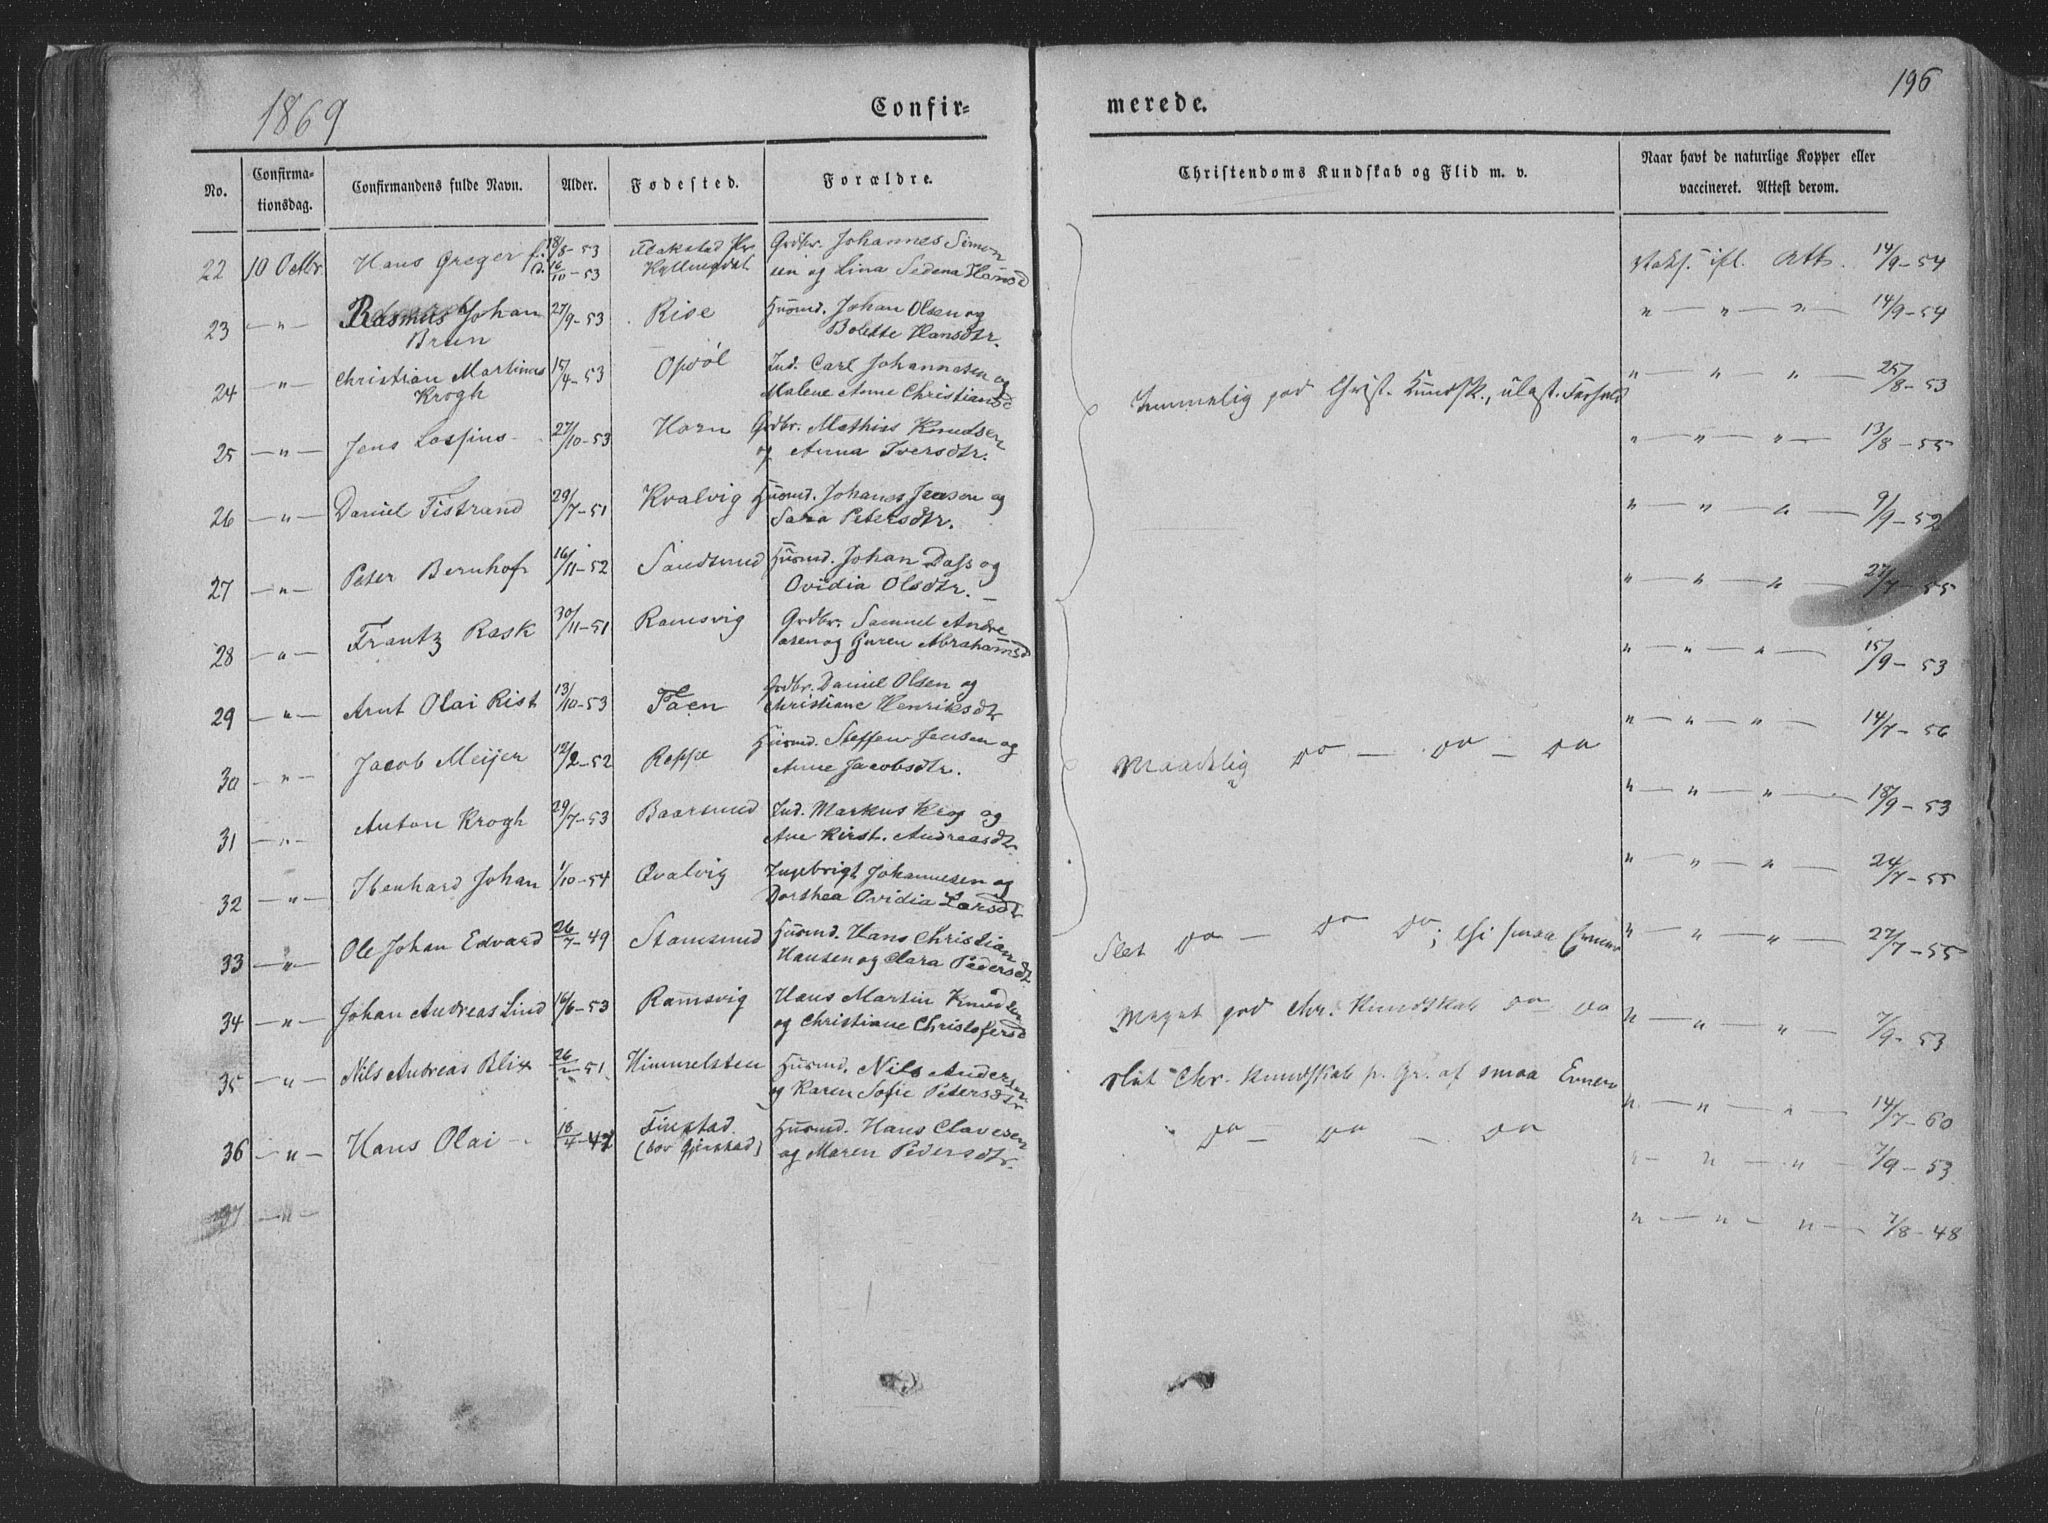 1869
Confir-
merede.
196
No.
Confirma-
tionsdag.
Confirmandens fulde Navn.
Alder.
Fødested.
Forældre.
Christendoms Kundskab og Flid m. v.
Naar havt de naturlige Kopper eller
vaccineret. Attest derom.
22 10 Octbr. Hans Greger f. 18/8-53 D. 16/10-53 Grdbr. Johannes Simon
sen og Lina Sedena Hansd
Vaks. ifl. Att. 14/9-54
23 -"- Rasmus Johan 27/9-53 Rise Huusmd. Johan Olsen og
Brun Bolette Hansdtr.
" - " - " - 14/9-54
24 -"- Christian Martinus 15/4-53 Opdøl Ind. Carl Johannesen og
Krogh Malene Anne Christiansd
" " " 25/8-53
Temmelig god Christ. Kundsk., ulast. Forhold
25 -"- Jens 27/10-53 Horn Grdbr. Mathis Knudsen
og Anna Iversdtr.
" - " - " - 13/8-55
26 -"- Daniel Fistrand 29/7-51 Kvalvig Huusmd. Johans Jensen og
Sara Petersdtr.
" - " - " 9/9-52
27 -"- Peter Bernhof 16/11-52 Sandsund Huusmd. Johan Dass og
Ovidia Olsdtr. -
" - " - " 27/7-55
28 -"- Frantz Rask 30/11-51 Ramsvig Grdbr. Samuel Andre
asen og Guren Abrahamsd
" - " - " - 15/9-53
29 -"- Arnt Olai Rist 13/10-53 Faen Grdbr. Daniel Olsen og
Christiane Henriksdtr
" - " - " - 14/7-56
30 -"- Jacob Meijer 12/2-52 Reppe Huusmd. Steffen Jensen og
Anne Jacobsdtr.
Maadelig Do - Do - Do
" - " - " - 18/9-53
31 -"- Anton Krogh 29/7-53 Baarsund Ind. Markus og
Ane Kirst. Andreasdtr.
" - " - " - 24/7-55
32 -"- Johan 1/10-54 Qvalvig Ingebrigt Johannesen og
Dorthea Ovidia Larsdtr
33 -"- Ole Johan Edvard 26/7-49 Stamsund Huusmd. Hans Christian
Hansen og Clara Pedersdtr
Slet Do - Do Do; smaa Evner
" - " - " - 27/7-55
34 -"- Johan Andreas Lind 16/6-53 Ramsvig Hans Martin Knudsen
og Christiane Christofersd
Meget god Chr. Kundskab Do - Do
" - " - " - 7/9-53
35 -"- Nils Andreas Blix 26/-51 Himmelsten Huusmd. Nils Andersen
og Karen Sofie Petersdtr
Slet Chr. Kundskab p. Gr. af smaa Evner
" - " - " - 14/7-60
36 -"- Hans Olai - 18/4-47 Finstad Huusmd. Hans Clavesen
og Maren Pedersdtr.
Do - Do - Do
" - " - " - 7/9-53
37 -"-
" - " - " - 7/8-48